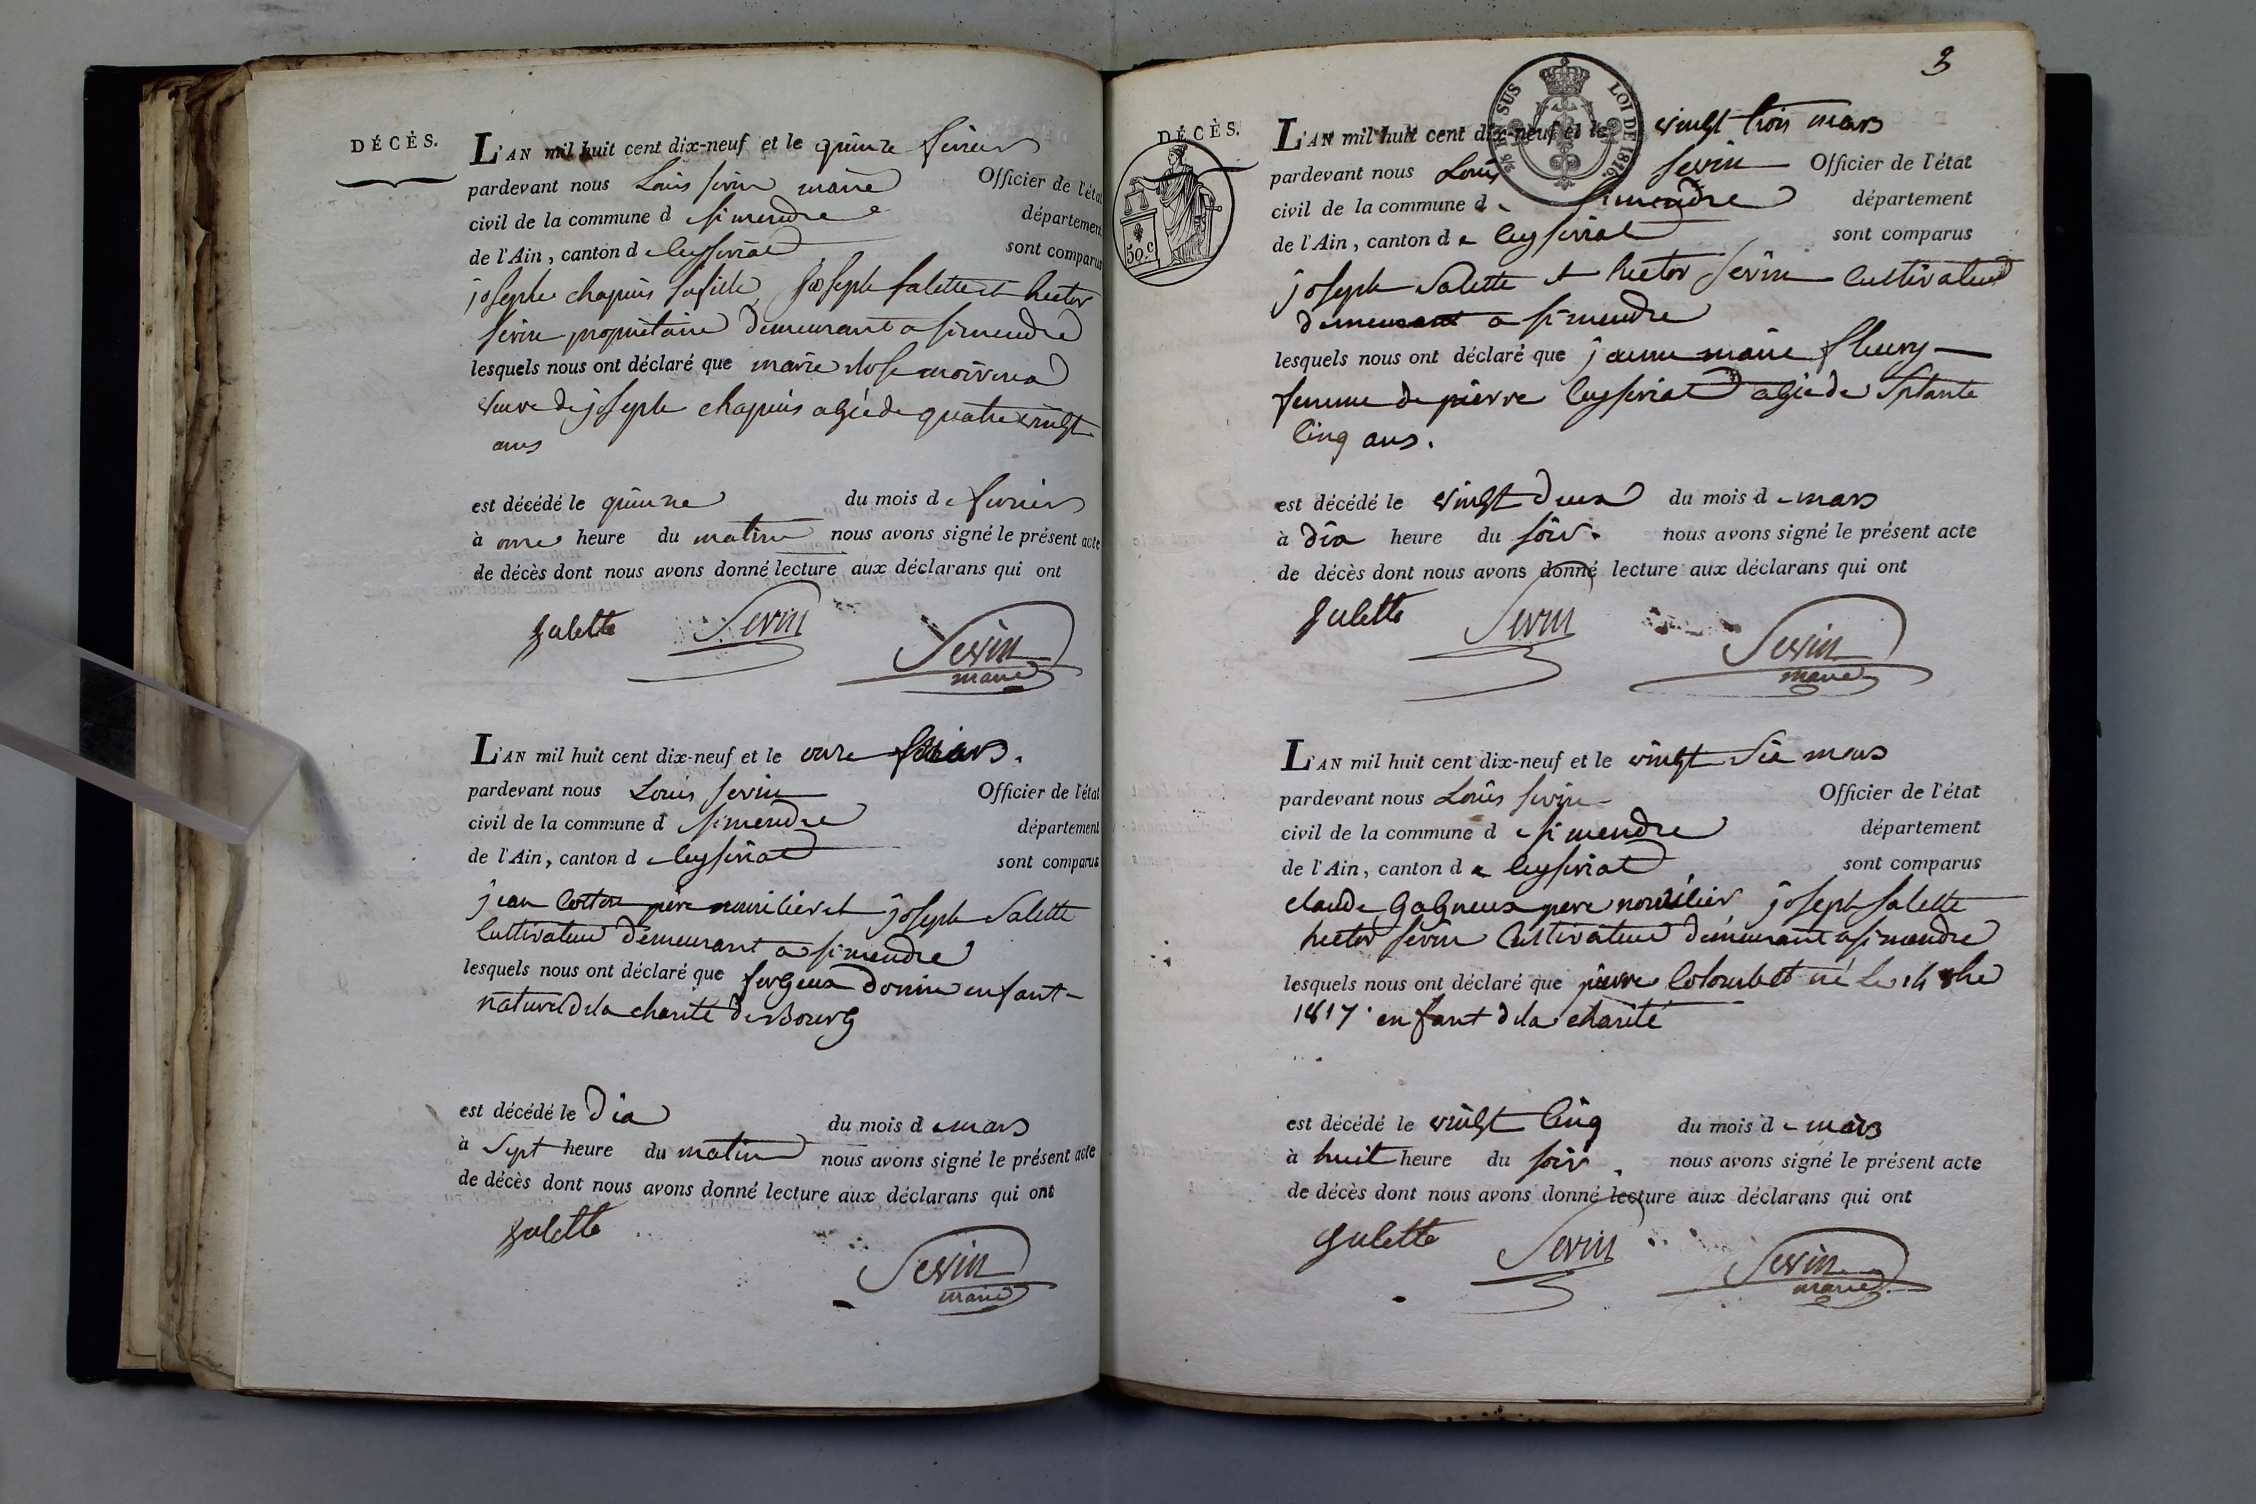 DÉCÈS.
L'AN mil huit cent dix-neuf et le quinze fevrier
pardevant nous Louis sevin maire Officier de l'état
civil de la commune d simendre département
de l'Ain, canton d e Ceyseriat sont comparus
josephe chapuis sa fille, joseph salette et hector
sevin propriétaire demeurant a simendre
lesquels nous ont déclaré que marie
veuve de joseph chapuis agée de quatre vingt
ans
est décédé le quinze du mois d e fevrier
à onze heure du matin nous avons signé le présent acte
de décès dont nous avons donné lecture aux déclarans qui ont
Salette Sevin Sevin
maire
L'AN mil huit cent dix-neuf et le onze mars.
pardevant nous Louis sevin Officier de l'état
civil de la commune d simendre département
de l'Ain, canton d e Ceyseriat sont comparus
jean père nouricier et joseph Salette
Cultivateur demeurant a simendre
lesquels nous ont déclaré que enfant
naturel de la charité de Bourg
est décédé le dix du mois d e mars
à Sept heure du matin nous avons signé le présent acte
de décès dont nous avons donné lecture aux déclarans qui ont
Salette Sevin
maire
3
½ EN SUS LOI DE 1816.
DÉCÈS.
50.c
L'AN mil huit cent dix-neuf et le vingt trois mars
pardevant nous Louis sevin Officier de l'état
civil de la commune d e simendre département
de l'Ain, canton d e Ceyseriat sont comparus
joseph Salette et hector Sevin Cultivateur
demeurant a simendre
lesquels nous ont déclaré que jeanne marie fleury
femme de pierre Ceyseriat agée de Sptante
Cinq ans.
est décédé le vingt deux du mois d e mars
à dix heure du soir. nous avons signé le présent acte
de décès dont nous avons donné lecture aux déclarans qui ont
Salette Sevin Sevin
maire
L'AN mil huit cent dix-neuf et le vingt Six mars
pardevant nous Louis sevin Officier de l'état
civil de la commune d e simendre département
de l'Ain, canton d e Ceyseriat sont comparus
claude Gagneux pere nouricier joseph salette
hector sevin Cultivateur demeurant a simendre
lesquels nous ont déclaré que pierre Colombet né le 14 8bre
1817 enfant de la charité
est décédé le vingt Cinq du mois d e mars
à huit heure du soir. nous avons signé le présent acte
de décès dont nous avons donné lecture aux déclarans qui ont
Salette Sevin Sevin
maire